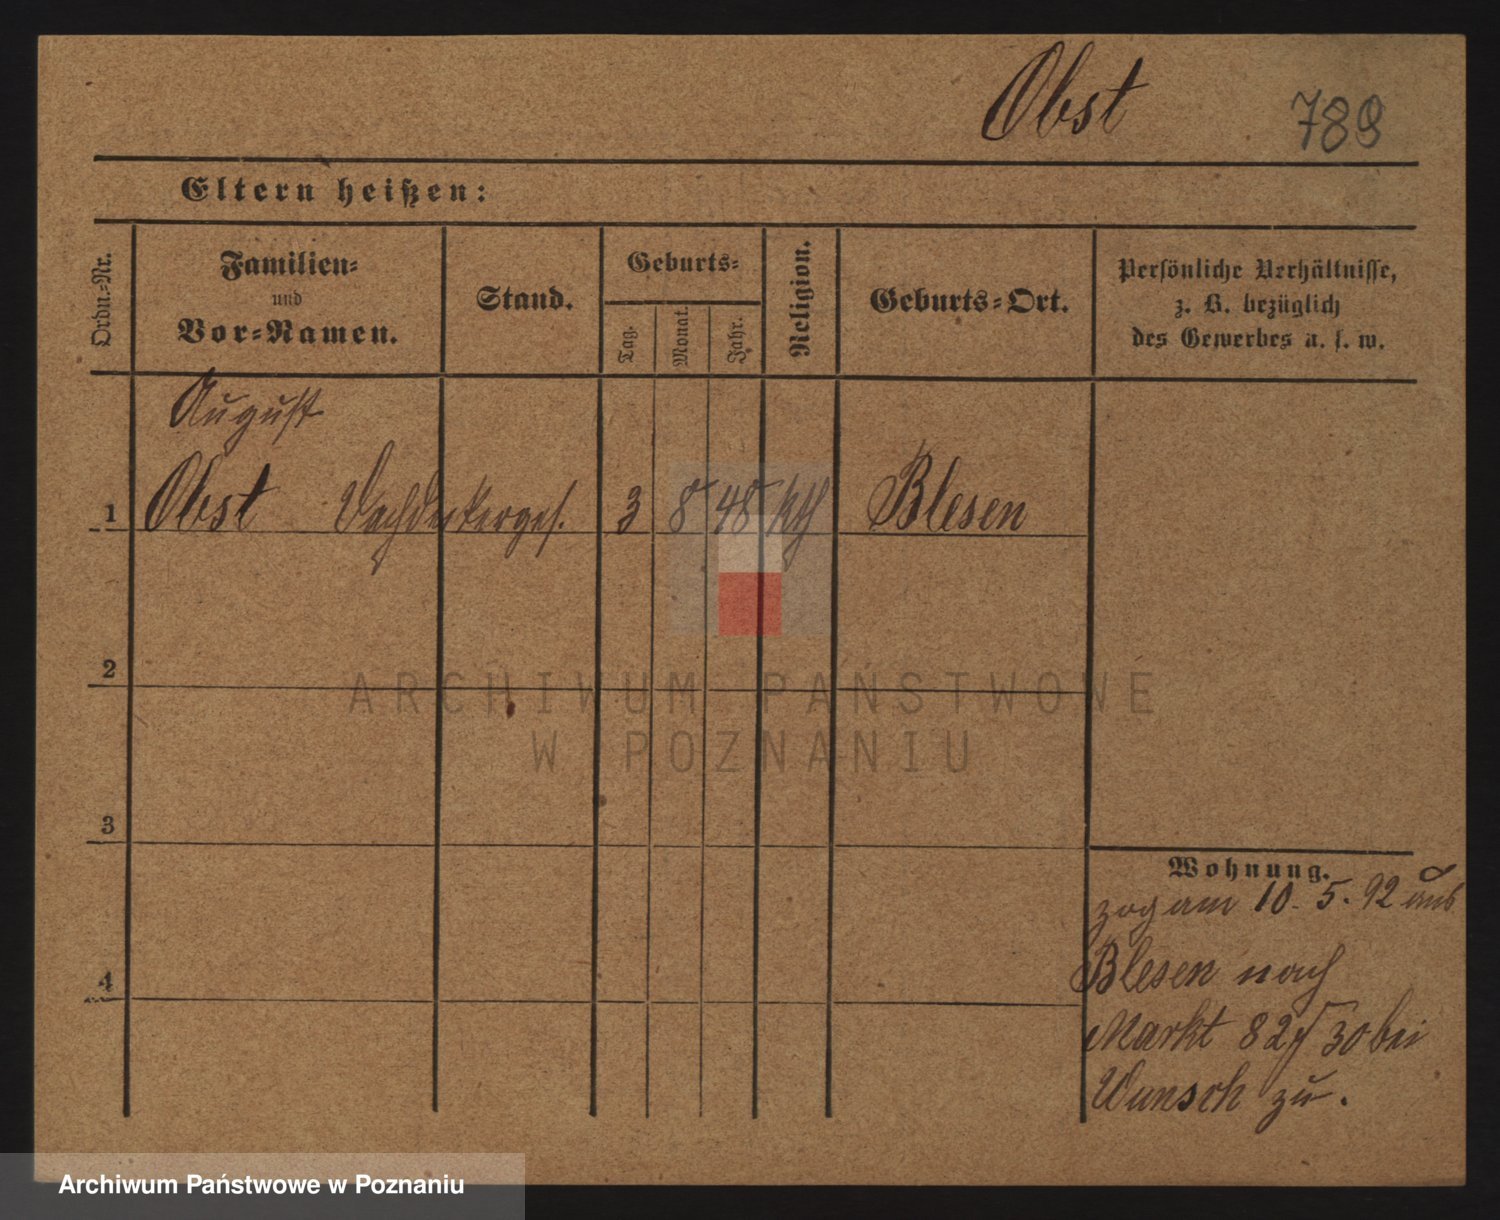 Obst 789
Eltern heißen:
Ordn.-Nr.
Familien-
und
Vor-Namen.
Stand.
Geburts-
Tag.
Monat.
Jahr.
Religion.
Geburts-Ort.
Persönliche Verhältnisse,
z. B. bezüglich
des Gewerbes u. s. w.
August
1 Obst Dachdeckerges. 3 8 48 kth Blesen
2
3
4
Wohnung.
zog am 10. 5. 92 aus
Blesen nach
Markt 82/30 bei
Wunsch zu.
ARCHIWUM PAŃSTWOWE
W POZNANIU
Archiwum Państwowe w Poznaniu